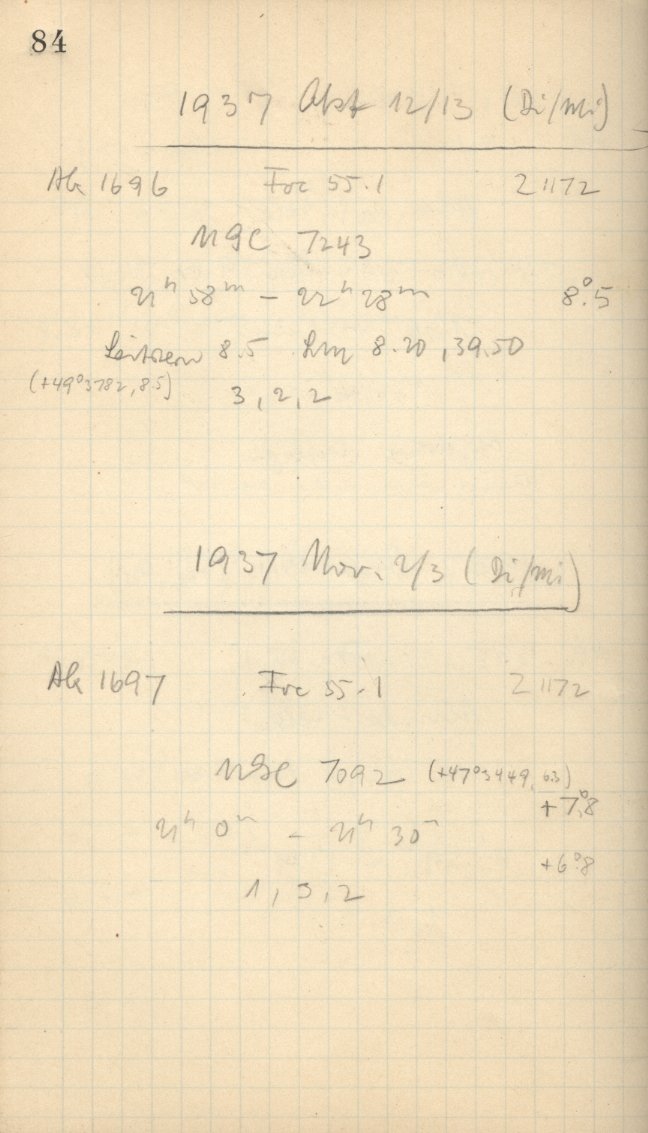 84
1937 Okt 12/13 (Di/Mi)
AK 1696 Foc 55.1 Z 1172
NGC 7243
21ʰ 58ᵐ – 22ʰ 28ᵐ 8°.5
Leitstern 8.5 8.20, 39.50
(+49°3782, 8.5)
3, 2, 2
1937 Nov. 2/3 (Di/Mi)
AK 1697 Foc 55.1 Z 1172
NGC 7092 (+47°3449, 6.3)
+7°.8
21ʰ 0ᵐ – 21ʰ 30ᵐ
+6°.8
1, 3, 2